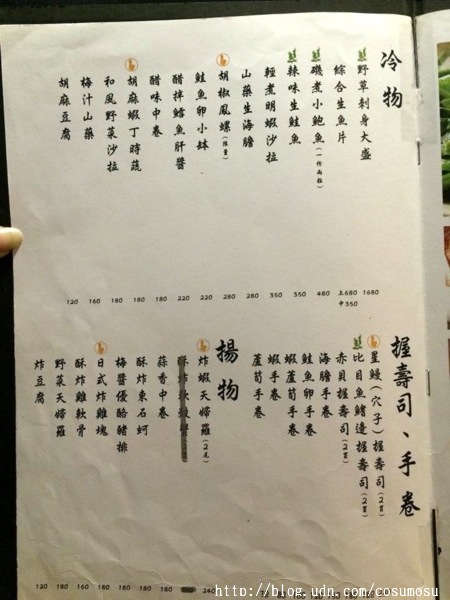 冷物
野草刺身大盛 1680
綜合生魚片 上680 中350
磯煮小鮑魚(一份兩粒) 480
辣味生鮭魚 350
輕煮明蝦沙拉 350
山藥生海膽 280
胡椒鳳螺(限量) 280
鮭魚卵小缽 220
醋拌鱈魚肝醬 220
醋味中卷 180
胡麻蝦丁時蔬 180
和風野菜沙拉 180
梅汁山藥 160
胡麻豆腐 120
握壽司、手卷
星鰻(穴子)握壽司(2貫)
比目魚鰭邊握壽司(2貫)
赤貝握壽司(2貫)
海膽手卷
鮭魚卵手卷
蝦蘆筍手卷
蝦手卷
蘆筍手卷
揚物
炸蝦天婦羅(2尾) 240
蒜香中卷 180
酥炸東石蚵 180
梅醬優酪豬排 180
日式炸雞塊 180
酥炸雞軟骨 160
野菜天婦羅 180
炸豆腐 120
http://blog.udn.com/cosumosu